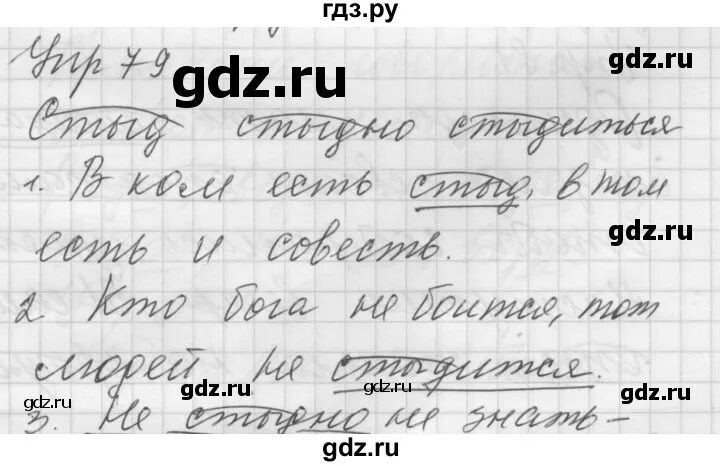 гдз.ру
Упр 79
gdz.ru
Стыд стыдно стыдиться
1. В ком есть стыд, в том
gdz.ru
есть и совесть.
gdz.ru
2 Кто бога не боится, тот
людей не стыдится.
gdz.ru gdz.ru gdz.ru
3. Не стыдно не знать-
gdz.ru